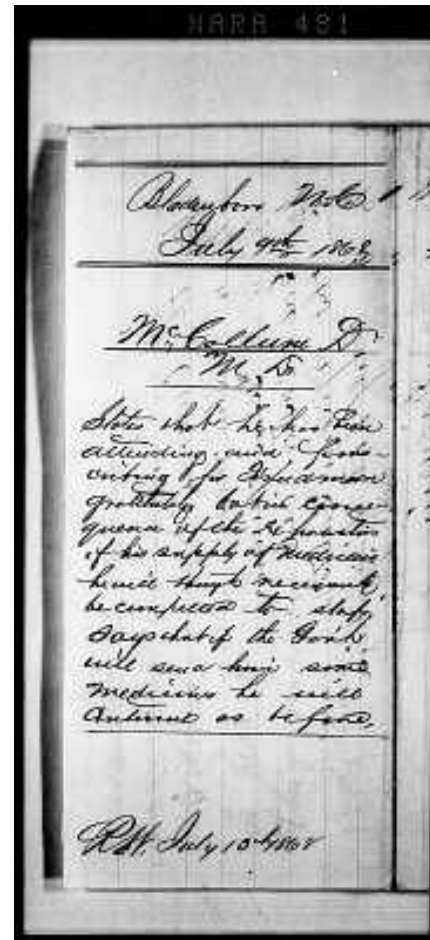 NARA 481
Bladenboro N.C.
July 9th 1868
McCollum D
M.D
States that he has been
attending and pres-
cribing for Freedmen
gratuitously but in conse-
quence of the Exhaustion
of his supply of Medicines
he will though
be compelled to stop,
says that if the Govt
will send him some
medicines he will
continue as before,
July 13th 1868